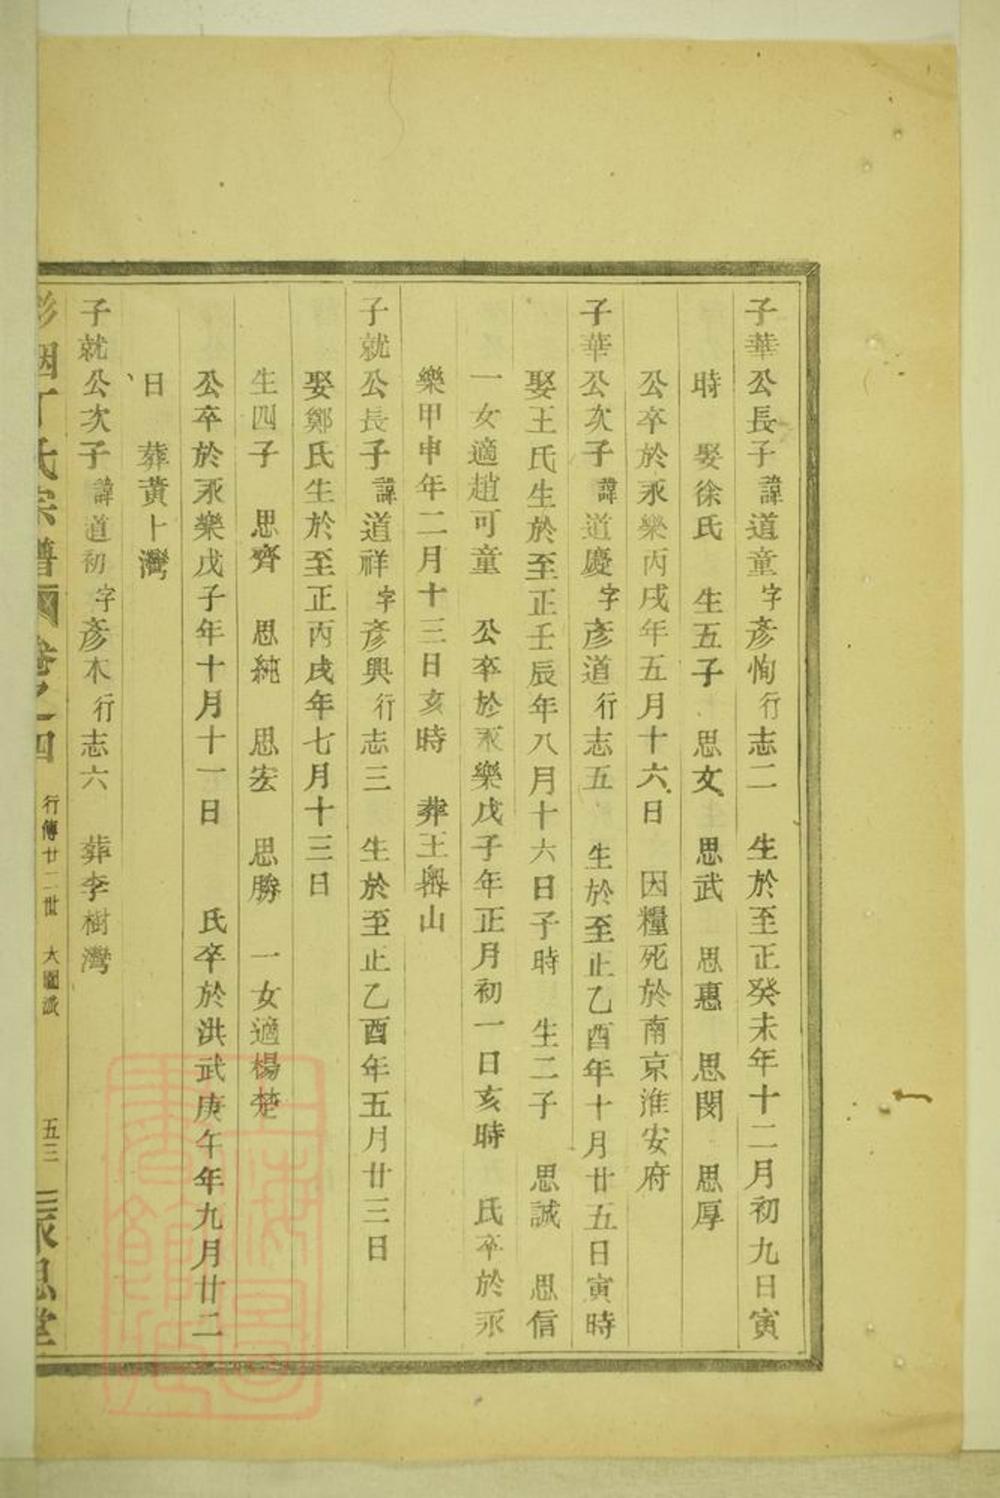 子華公長子諱道童字彥恂行志二 生於至正癸未年十二月初九日寅
時 娶徐氏 生五子 思文 思武 思惠 思閔 思厚
公卒於永樂丙戌年五月十六日 因糧死於南京淮安府
子華公次子諱道慶字彥道行志五 生於至正乙酉年十月廿五日寅時
娶王氏生於至正壬辰年八月十六日子時 生二子 思誠 思信
一女適趙可童 公卒於永樂戊子年正月初一日亥時 氏卒於永
樂甲申年二月十三日亥時 葬王嶴山
子就公長子諱道祥字彥興行志三 生於至正乙酉年五月廿三日
娶鄭氏生於至正丙戌年七月十三日
生四子 思齊 思純 思宏 思勝 一女適楊楚
公卒於永樂戊子年十月十一日 氏卒於洪武庚午年九月廿二
日 葬黃卜灣
子就公次子諱道初字彥木行志六 葬李樹灣
丁氏宗譜 卷之四 行傳廿二世 五三 永思堂